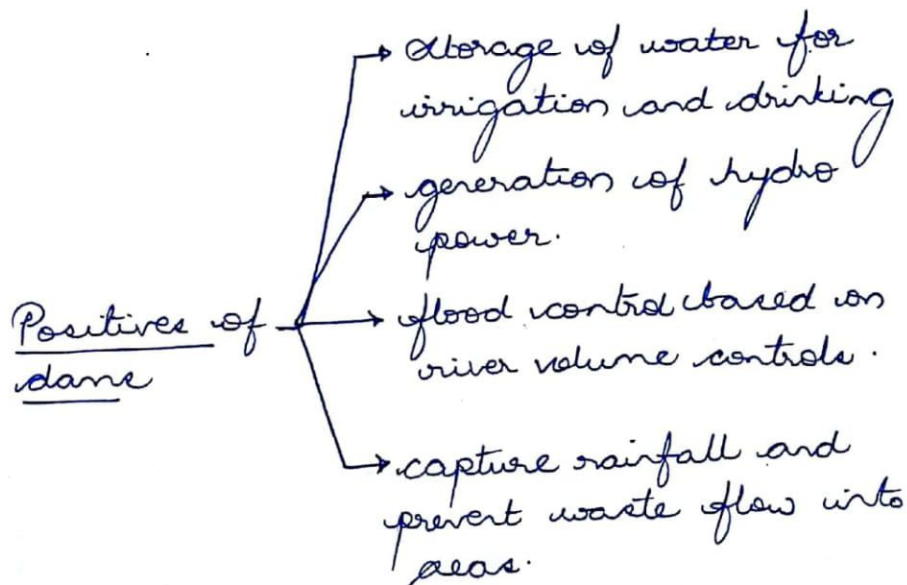 storage of water for
irrigation and drinking
generation of hydro
power.
Positives of
dams
flood control based on
river volume controls.
capture rainfall and
prevent waste flow into
seas.